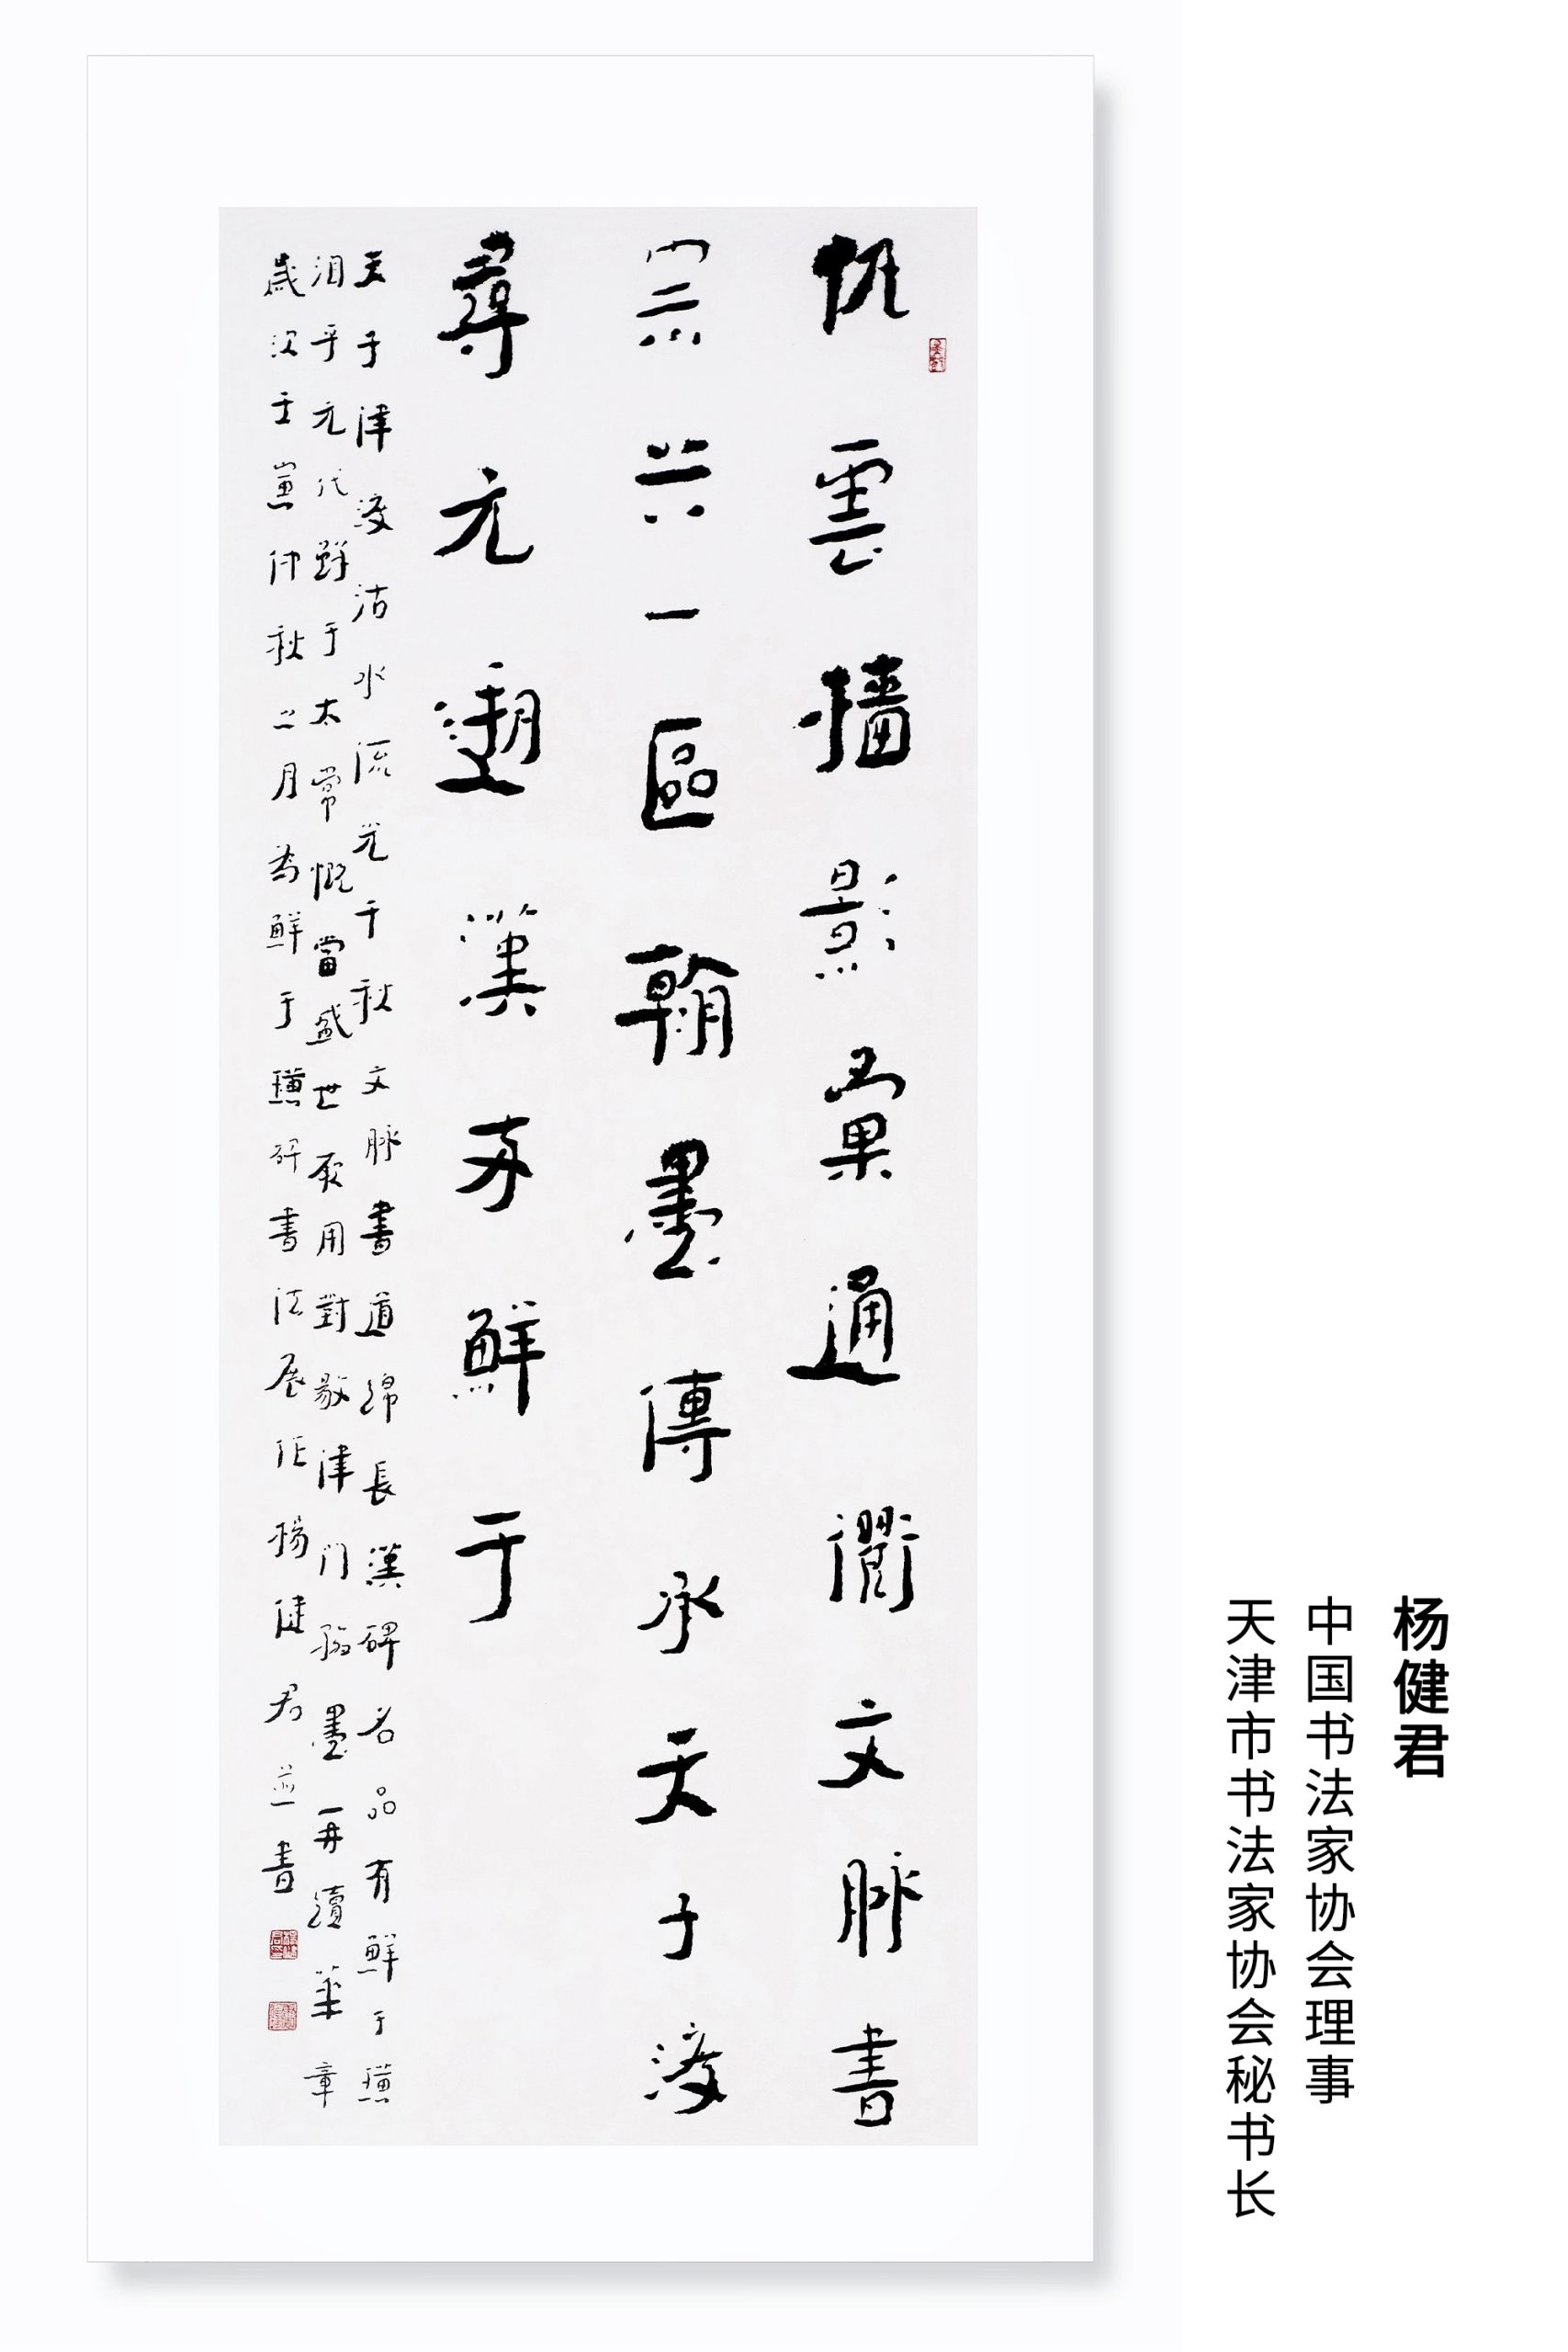 帆雲檣影彙通衢文脈書
宗共一區翰墨傳承天子渡
尋元遡漢兩鮮于
天子津渡沽水流光千秋文脈書道綿長漢碑名品有鮮于璜
洎乎元代鮮于太常慨當盛世爰用對敭津門翰墨再續華章
歲次壬寅仲秋之月為鮮于璜碑書法展作楊健君並書
杨健君
中国书法家协会理事
天津市书法家协会秘书长